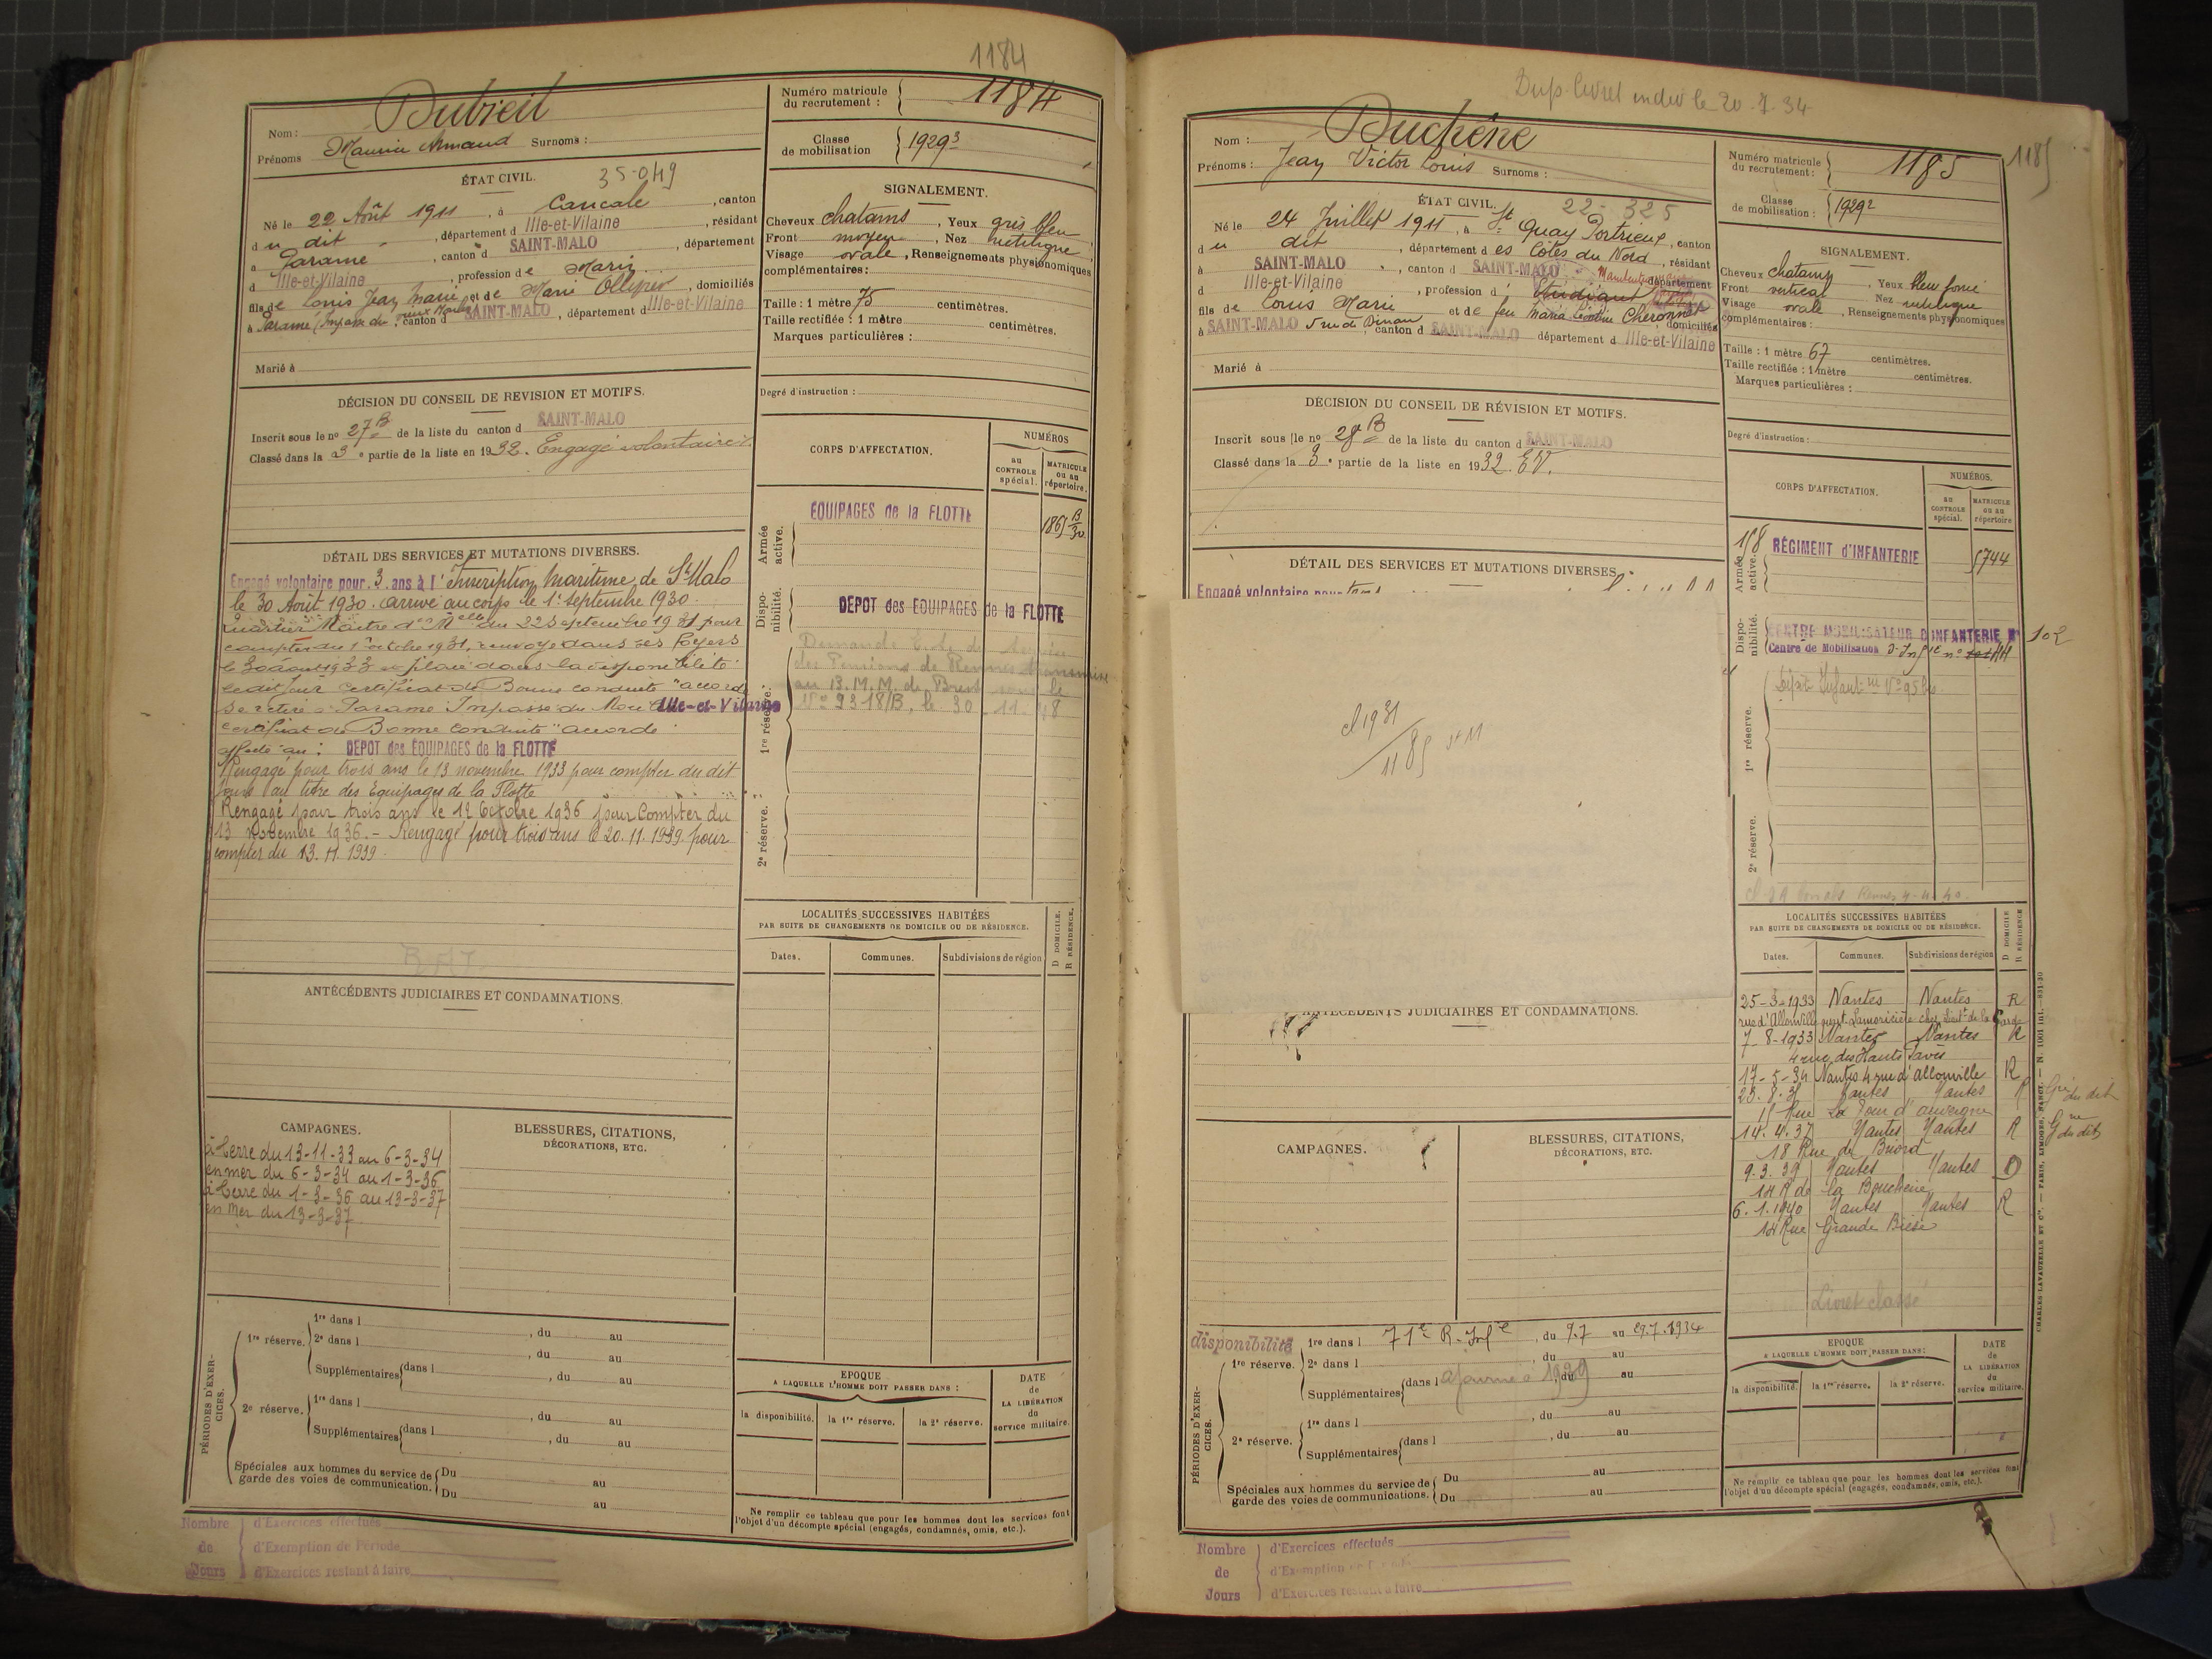 1184
Nom : Dubreil
Prénoms Maurice Armand Surnoms :
Numéro matricule du recrutement : 1184
Classe de mobilisation 1929³
ÉTAT CIVIL. 35-049
Né le 22 Août 1911, à Cancale, canton
du dit, département d Ille-et-Vilaine, résidant
à Paramé, canton d SAINT-MALO, département
d Ille-et-Vilaine, profession de Marin
fils de Louis Jean Marie et de Marie, domiciliés
à Paramé (Impasse du, canton d SAINT-MALO, département d Ille-et-Vilaine
Marié à
SIGNALEMENT.
Cheveux chatains, Yeux gris bleu
Front moyen, Nez rectiligne
Visage ovale, Renseignements physionomiques
complémentaires :
Taille : 1 mètre 75 centimètres.
Taille rectifiée : 1 mètre centimètres.
Marques particulières :
Degré d'instruction :
DÉCISION DU CONSEIL DE REVISION ET MOTIFS.
Inscrit sous le nº 27 B de la liste du canton d SAINT-MALO
Classé dans la 3e partie de la liste en 1932. Engagé volontaire
CORPS D'AFFECTATION.
NUMÉROS
au CONTROLE spécial.
MATRICULE ou au répertoire.
Armée active.
EQUIPAGES de la FLOTTE
1865 B/30
Disponibilité.
DEPOT des EQUIPAGES de la FLOTTE
1re réserve.
des Pensions de Rennes transmise
au B.M.M. de Brest sous le
Nº 9318/B, le 30-11-48
2e réserve.
DÉTAIL DES SERVICES ET MUTATIONS DIVERSES.
Engagé volontaire pour 3 ans à l'Inscription Maritime de St Malo
le 30 Août 1930. arrivé au corps le 1er Septembre 1930.
Quartier Maître du 22 septembre 1931 pour
compter du 1er octobre 1931, renvoyé dans ses foyers
le 30 aout 1933 et placé dans la disponibilité
ledit jour certificat de Bonne conduite "accordé
Se retire à Paramé Impasse du Ille-et-Vilaine
certificat de "Bonne Conduite" accordé
affecté au : DEPOT des EQUIPAGES de la FLOTTE
Rengagé pour trois ans le 13 novembre 1933 pour compter du dit
jour au titre des Equipages de la Flotte
Rengagé pour trois ans le 12 Octobre 1936 pour Compter du
13 novembre 1936. - Rengagé pour trois ans le 20.11.1939 pour
compter du 13.11.1939.
ANTÉCÉDENTS JUDICIAIRES ET CONDAMNATIONS.
LOCALITÉS SUCCESSIVES HABITÉES
PAR SUITE DE CHANGEMENTS DE DOMICILE OU DE RÉSIDENCE.
D DOMICILE.
R RÉSIDENCE.
Dates. Communes. Subdivisions de région
CAMPAGNES.
à terre du 13-11-33 au 6-3-34
en mer du 6-3-34 au 1-3-36
à terre du 1-3-36 au 13-3-37
en mer du 13-3-37
BLESSURES, CITATIONS,
DÉCORATIONS, ETC.
PÉRIODES D'EXERCICES.
1re réserve.
1re dans l , du au
2e dans l , du au
Supplémentaires dans l , du au
2e réserve.
1re dans l , du au
Supplémentaires dans l , du au
Spéciales aux hommes du service de garde des voies de communication. Du au
Du au
EPOQUE
A LAQUELLE L'HOMME DOIT PASSER DANS :
la disponibilité. la 1re réserve. la 2e réserve.
DATE de LA LIBÉRATION du service militaire.
Ne remplir ce tableau que pour les hommes dont les services font
l'objet d'un décompte spécial (engagés, condamnés, omis, etc.).
Nombre de Jours
d'Exercices effectués
d'Exemption de Période
d'Exercices restant à faire
Dup. livret le 20.7.34
Nom : Duchêne
Prénoms : Jean Victor Louis Surnoms :
Numéro matricule du recrutement : 1185
1185
Classe de mobilisation : 1929²
ÉTAT CIVIL. 22-325
Né le 24 Juillet 1911, à St Quay Portrieux, canton
du dit, département des Côtes du Nord, résidant
à SAINT-MALO, canton d SAINT-MALO, département
d Ille-et-Vilaine, profession d' étudiant
fils de Louis Marie et de feu Maria, domiciliés
à SAINT-MALO 5 rue de Dinan, canton d SAINT-MALO département d Ille-et-Vilaine
Marié à
SIGNALEMENT.
Cheveux chatains, Yeux bleu foncé
Front vertical, Nez rectiligne
Visage ovale, Renseignements physionomiques
complémentaires :
Taille : 1 mètre 67 centimètres.
Taille rectifiée : 1 mètre centimètres.
Marques particulières :
Degré d'instruction :
DÉCISION DU CONSEIL DE RÉVISION ET MOTIFS.
Inscrit sous le nº 28 B de la liste du canton d SAINT-MALO
Classé dans la 3e partie de la liste en 1932. E.V.
CORPS D'AFFECTATION.
NUMÉROS.
au CONTROLE spécial.
MATRICULE ou au répertoire
Armée active.
158 RÉGIMENT d'INFANTERIE
5744
Disponibilité.
CENTRE MOBILISATEUR D'INFANTERIE Nº 102
Centre de Mobilisation d'Infie nº 111
1re réserve.
2e réserve.
DÉTAIL DES SERVICES ET MUTATIONS DIVERSES.
Engagé volontaire pour
cl 1931
1185 St M
ANTÉCÉDENTS JUDICIAIRES ET CONDAMNATIONS.
LOCALITÉS SUCCESSIVES HABITÉES
PAR SUITE DE CHANGEMENTS DE DOMICILE OU DE RÉSIDENCE.
D DOMICILE
R RÉSIDENCE
Dates. Communes. Subdivisions de région
25-3-1933 Nantes Nantes R
rue d'Allonville
7-8-1933 Nantes Nantes R
4 rue des Hauts Pavés
17-5-34 Nantes 4 rue d'allonville R
Nantes Nantes R Gne du dit
15 Rue La Tour d'auvergne
14.4.37 Nantes Nantes R Gne du dit
18 Rue de Briord
9.3.39 Nantes Nantes D
14 R de la Boucherie
6.1.1940 Nantes Nantes R
14 Rue Grande Biesse
Livret classé
CAMPAGNES.
BLESSURES, CITATIONS,
DÉCORATIONS, ETC.
PÉRIODES D'EXERCICES.
disponibilité 1re dans l 71e R. Infie, du 9.7 au 29.7.1934
1re réserve. 2e dans l , du au
Supplémentaires dans l ajourné à 1939 du au
2e réserve.
1re dans l , du au
Supplémentaires dans l , du au
Spéciales aux hommes du service de garde des voies de communications. Du au
Du au
EPOQUE
A LAQUELLE L'HOMME DOIT PASSER DANS :
la disponibilité. la 1re réserve. la 2e réserve.
DATE de LA LIBÉRATION du service militaire.
Ne remplir ce tableau que pour les hommes dont les services font
l'objet d'un décompte spécial (engagés, condamnés, omis, etc.).
CHARLES-LAVAUZELLE ET Cie. — PARIS, LIMOGES, NANCY. — N. 1001 int.—831-30
Nombre de Jours
d'Exercices effectués
d'Exemption
d'Exercices restant à faire